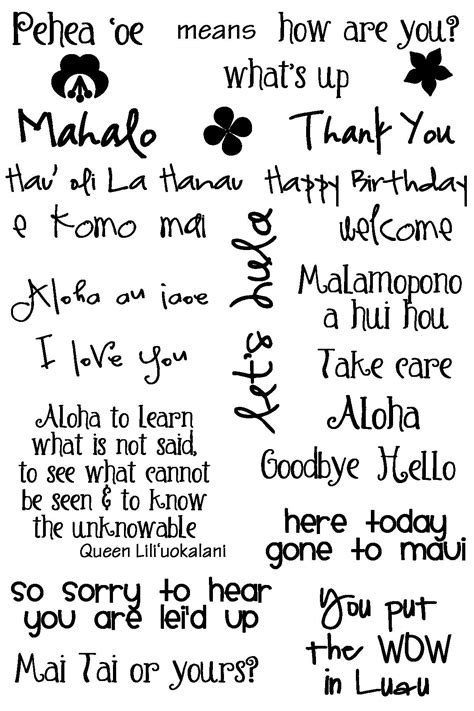 Pehea 'oe means how are you?
what's up
Mahalo Thank You
Hau' oli La Hanau Happy Birthday
e komo mai welcome
let's hula
Aloha au iaoe
I love you
Malamopono
a hui hou
Take care
Aloha
Goodbye Hello
Aloha to learn
what is not said,
to see what cannot
be seen & to know
the unknowable
Queen Lili'uokalani
here today
gone to maui
so sorry to hear
you are lei'd up
Mai Tai or yours?
You put
the WOW
in Luau